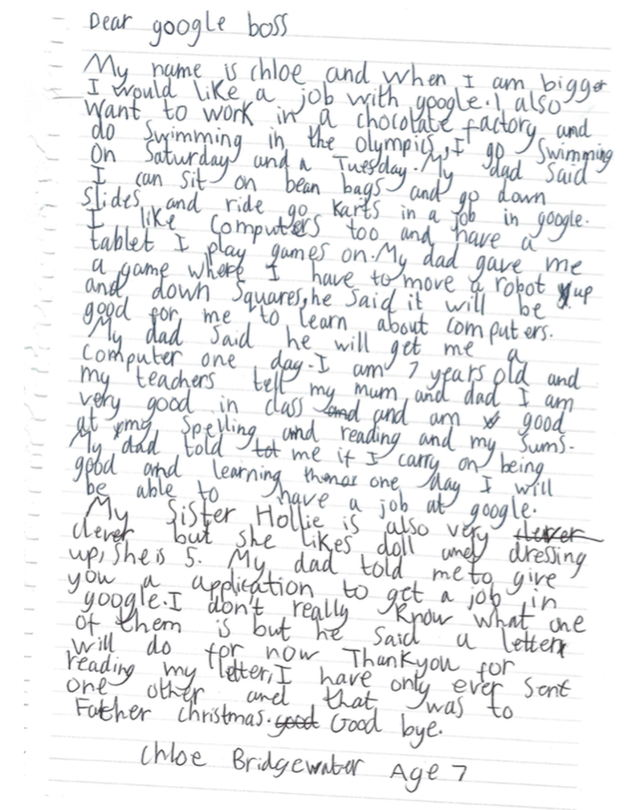 Dear google boss
My name is chloe and when I am bigger
I would like a job with google. I also
want to work in a chocolate factory and
do Swimming in the olympics, I go Swimming
On Saturday and a Tuesday. My dad said
I can sit on bean bags and go down
slides and ride go karts in a job in google.
I like computers too and have a
tablet I play games on. My dad gave me
a game where I have to move a robot up
and down squares, he said it will be
good for me to learn about computers.
My dad said he will get me a
computer one day. I am 7 years old and
my teachers tell my mum and dad I am
very good in class and and am good
at my spelling and reading and my sums.
My dad told me if I carry on being
good and learning one day I will
be able to have a job at google.
My Sister Hollie is also very clever
clever but she likes doll and dressing
up, she is 5. My dad told me to give
you a application to get a job in
google. I don't really know what one
of them is but he said a letter
will do for now Thankyou for
reading my letter, I have only ever sent
one other and that was to
Father christmas. good Good bye.
Chloe Bridgewater Age 7